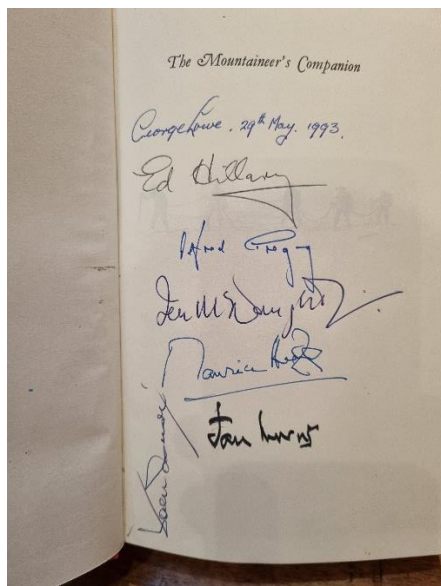 The Mountaineer's Companion
George Lowe. 29th May. 1993.
Ed Hillary
Alfred Gregory
Ian McNaught
Maurice
Jan Morris